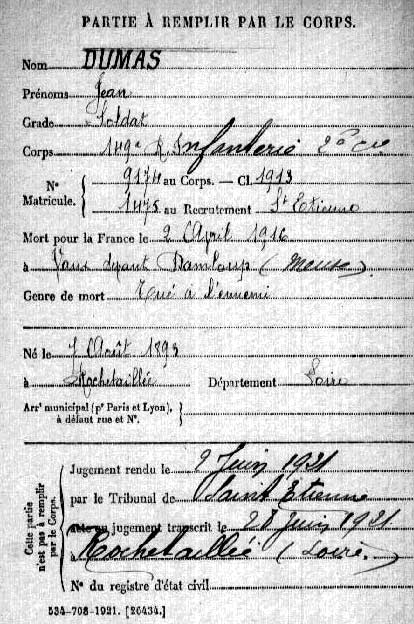 PARTIE À REMPLIR PAR LE CORPS.
Nom DUMAS
Prénoms Jean
Grade Soldat
Corps 149e R Infanterie 2e Cie
N° Matricule. { 9174 au Corps. — Cl. 1913
1475 au Recrutement St Etienne
Mort pour la France le 2 Avril 1916
à Vaux devant Damloup (Meuse)
Genre de mort Tué à l'ennemi
Né le 7 Août 1893
à Rochetaillée Département Loire
Arrt municipal (pr Paris et Lyon),
à défaut rue et N°.
Cette partie n'est pas à remplir par le Corps.
Jugement rendu le 2 Juin 1921
par le Tribunal de Saint Etienne
acte ou jugement transcrit le 28 Juin 1921
Rochetaillée (Loire.)
N° du registre d'état civil
534-708-1921. [26434.]